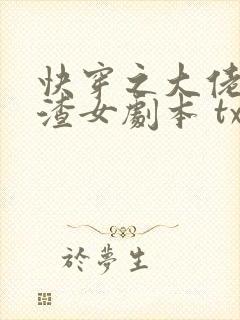 快穿之大佬
渣女劇本 tx
於夢生